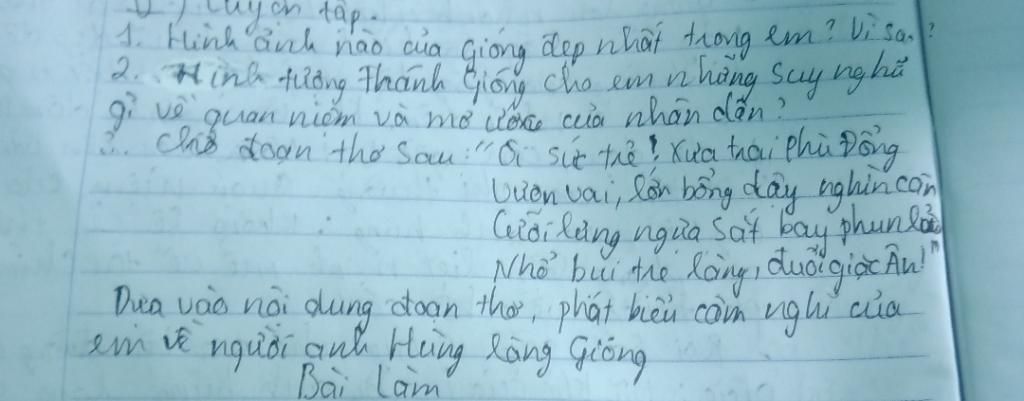 Luyện tập.
1. Hình ảnh nào của Gióng đẹp nhất trong em? Vì sao?
2. Hình tượng Thánh Gióng cho em những suy nghĩ
gì về quan niệm và mơ ước của nhân dân?
3. Cho đoạn thơ sau: "Ôi sức trẻ! Xưa trai Phù Đổng
Vươn vai, lớn bổng dậy nghìn cân
Cưỡi lưng ngựa sắt bay phun lửa
Nhổ bụi tre làng, đuổi giặc Ân!"
Dựa vào nội dung đoạn thơ, phát biểu cảm nghĩ của
em về người anh Hùng làng Gióng
Bài Làm